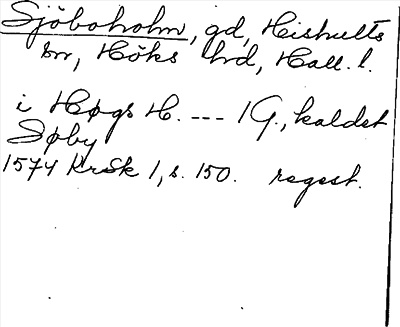 Sjöboholm, gd, Hishults
sn, Höks hd, Hall. l.
i Høgs H. --- 1 G., kaldet
Søby
1574 KrSk 1, s. 150. regest.